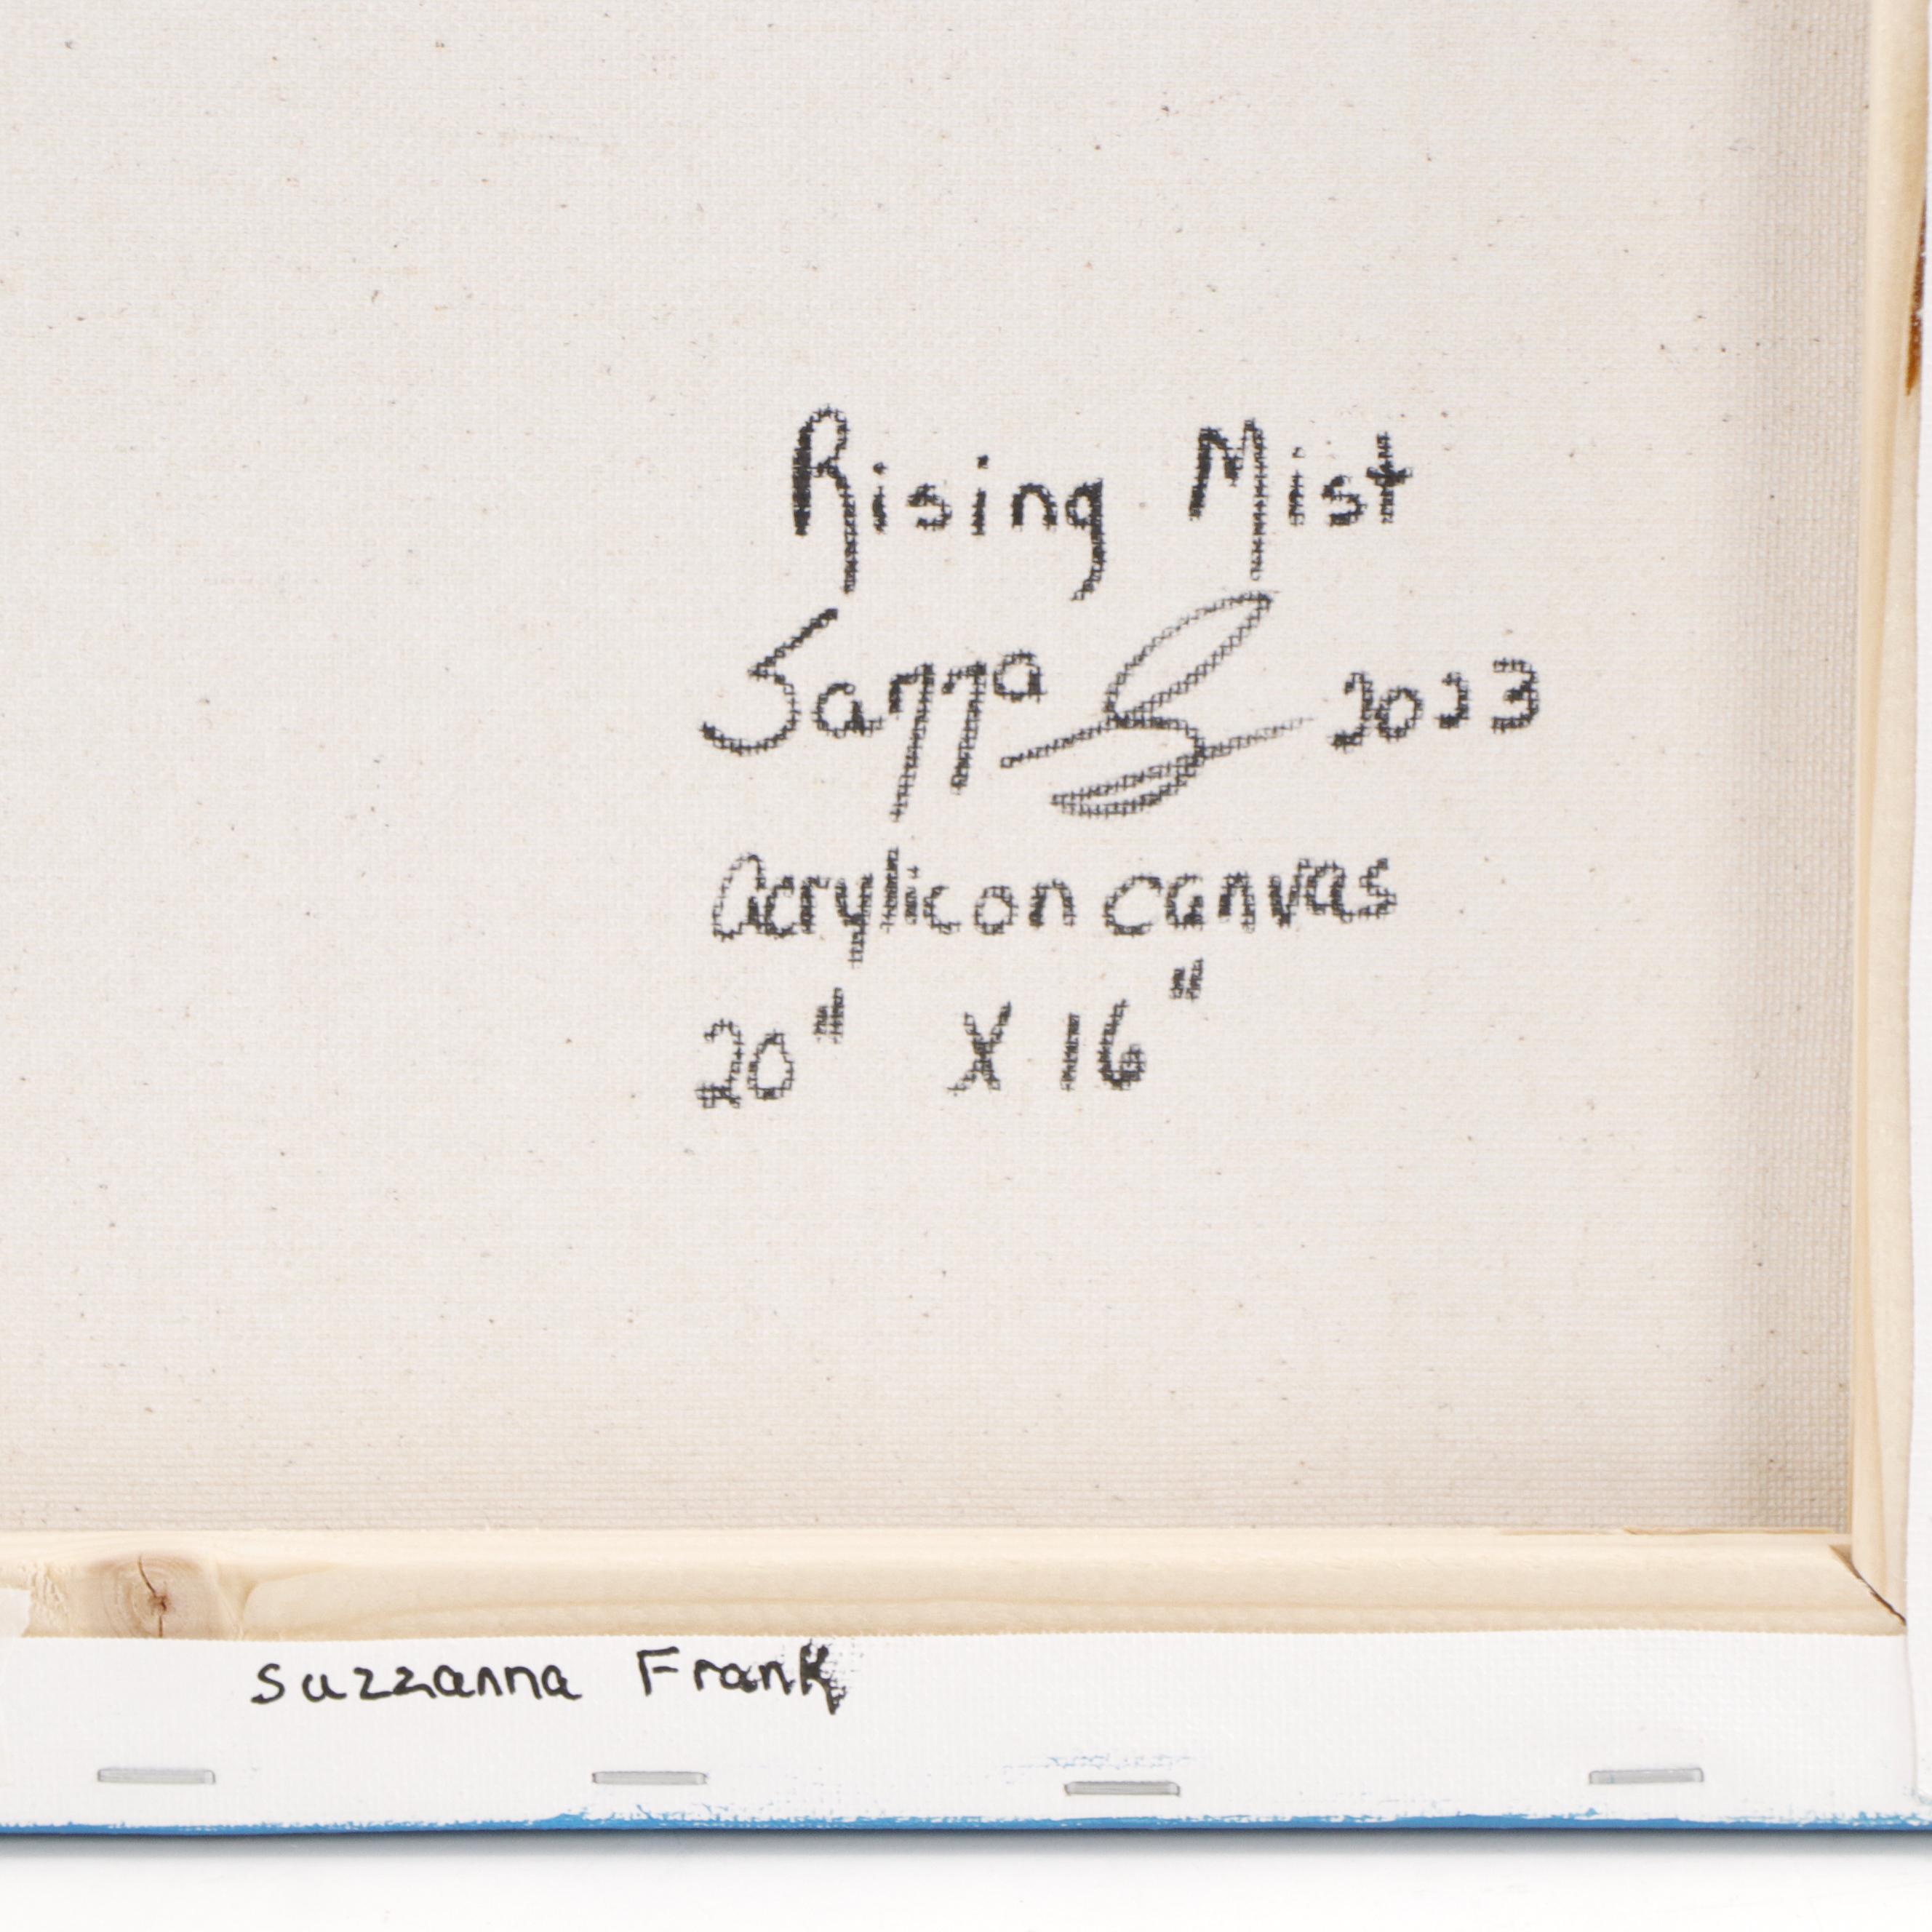 Rising Mist
Sanna 2023
Acrylic on canvas
20" X 16"
Suzzanna Frank